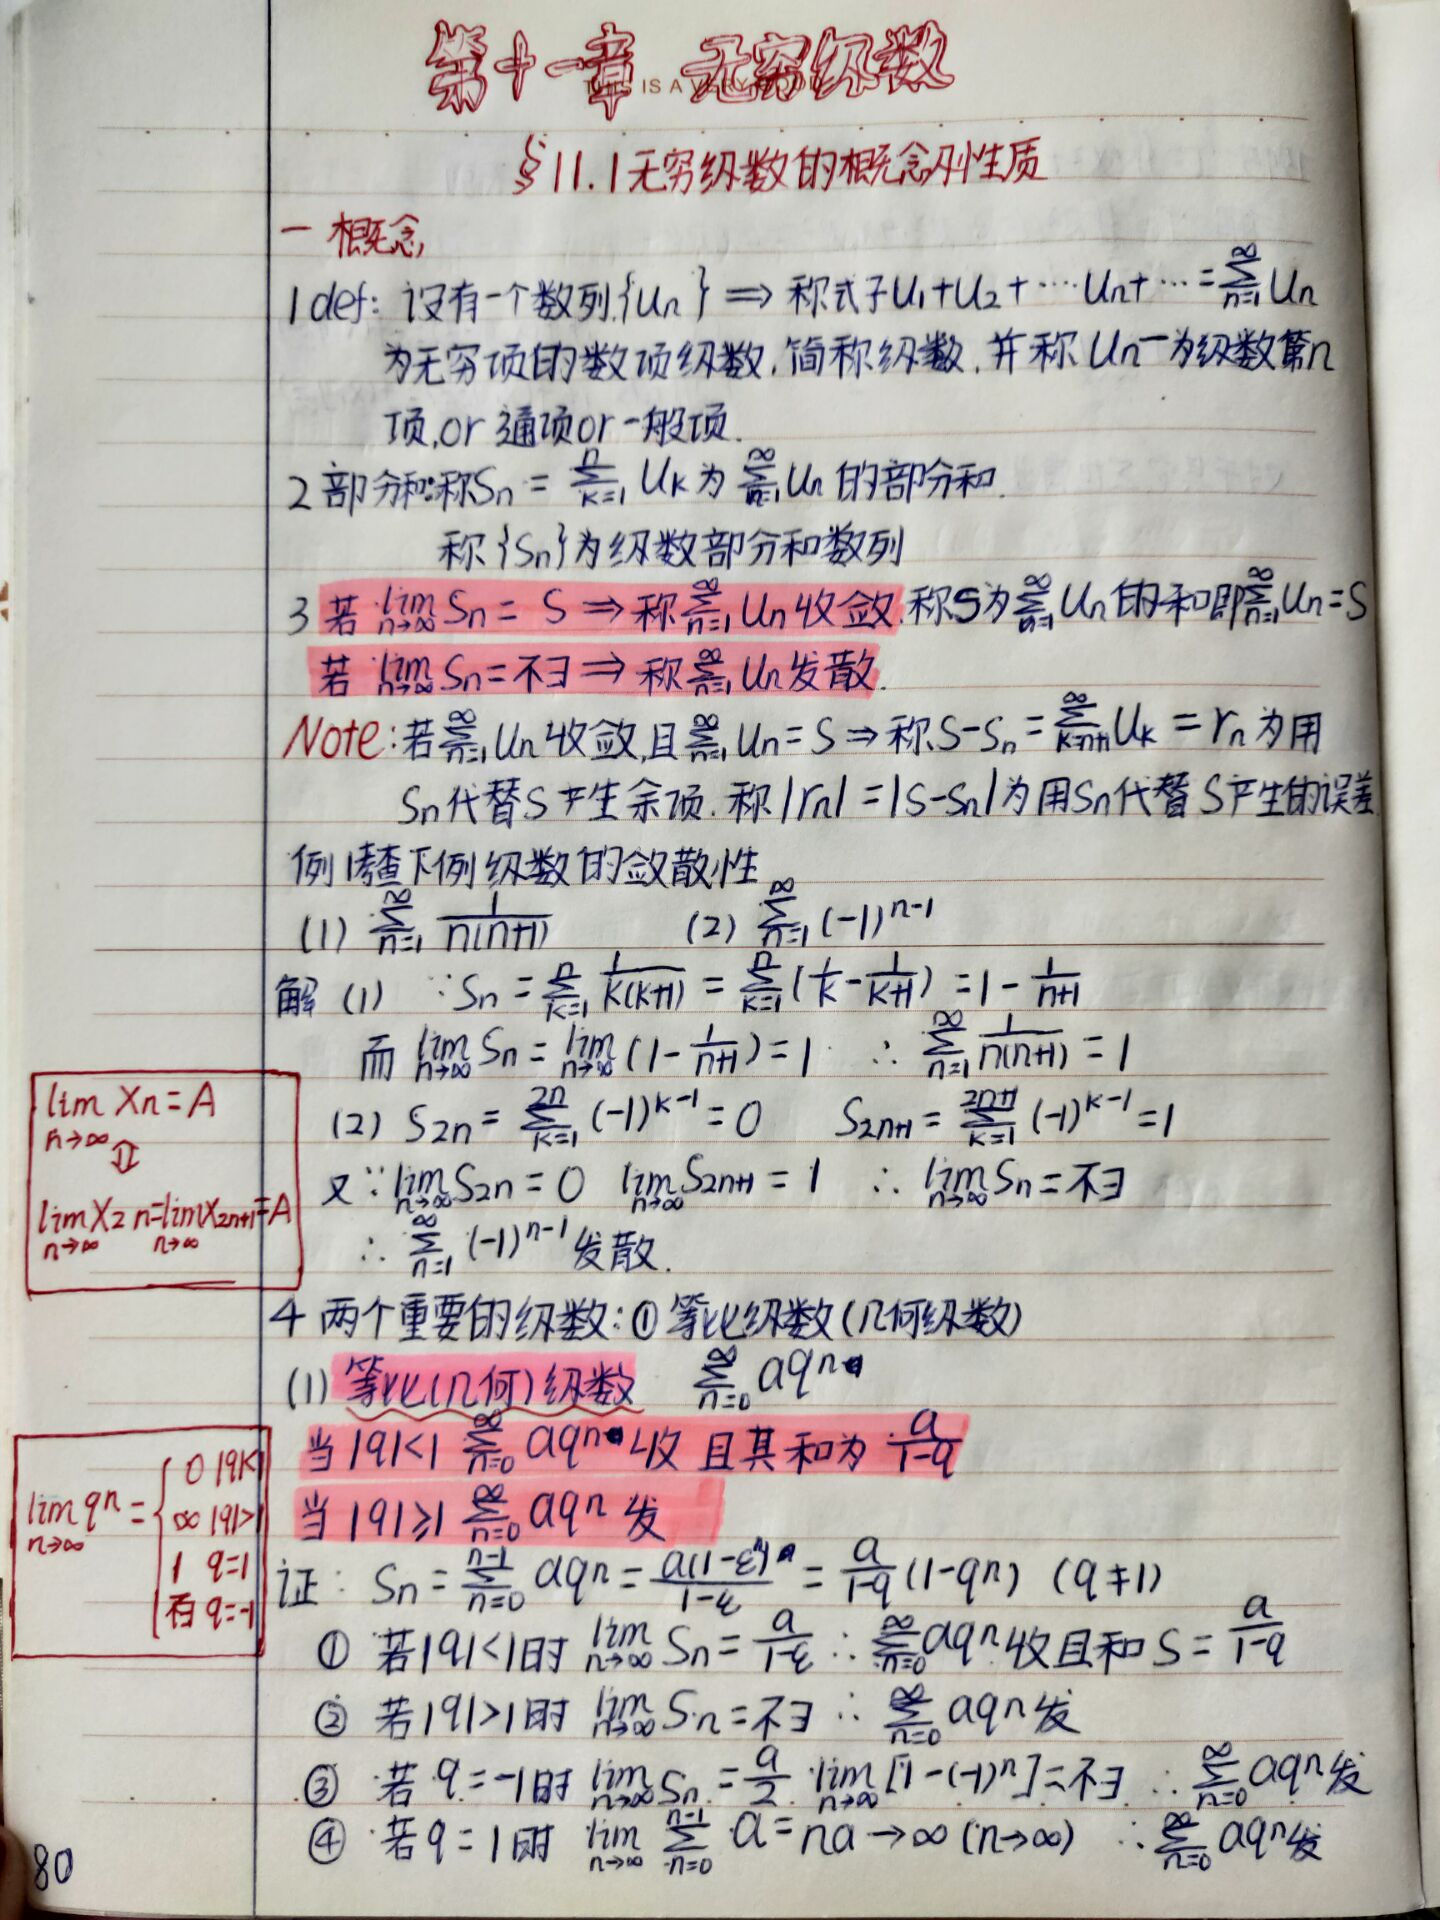 第十一章 无穷级数
§11.1 无穷级数的概念别性质
一 概念
1 def: 设有一个数列{Un} ⟹ 称式子U₁+U₂+⋯Un+⋯=∑_{n=1}^{∞} Un
为无穷项的数项级数,简称级数,并称Un一为级数第n
项,or 通项or 一般项.
2 部分和:称Sn = ∑_{k=1}^{n} Uk 为 ∑_{n=1}^{∞} Un 的部分和.
称{Sn}为级数部分和数列
3 若 lim_{n→∞} Sn = S ⇒ 称∑_{n=1}^{∞} Un 收敛.称S为∑_{n=1}^{∞} Un 的和即∑_{n=1}^{∞} Un=S
若 lim_{n→∞} Sn=不∃ ⇒ 称∑_{n=1}^{∞} Un 发散.
Note:若∑_{n=1}^{∞} Un 收敛,且∑_{n=1}^{∞} Un=S ⇒ 称S-Sn=∑_{k=n+1}^{∞} Uk = rn 为用
Sn代替S产生余项.称|rn|=|S-Sn|为用Sn代替S产生的误差.
例1考查下例级数的敛散性
(1) ∑_{n=1}^{∞} 1/(n(n+1)) (2) ∑_{n=1}^{∞} (-1)^{n-1}
解 (1) ∵Sn = ∑_{k=1}^{n} 1/(k(k+1)) = ∑_{k=1}^{n} (1/k - 1/(k+1)) = 1 - 1/(n+1)
而 lim_{n→∞} Sn = lim_{n→∞} (1 - 1/(n+1)) = 1 ∴ ∑_{n=1}^{∞} 1/(n(n+1)) = 1
lim_{n→∞} Xn=A
⇕
lim_{n→∞} X2n=lim_{n→∞} X2n+1=A
(2) S2n = ∑_{k=1}^{2n} (-1)^{k-1} = 0 S2n+1 = ∑_{k=1}^{2n+1} (-1)^{k-1} = 1
又∵ lim_{n→∞} S2n = 0 lim_{n→∞} S2n+1 = 1 ∴ lim_{n→∞} Sn=不∃
∴ ∑_{n=1}^{∞} (-1)^{n-1} 发散.
4 两个重要的级数:① 等比级数(几何级数)
(1) 等比(几何)级数 ∑_{n=0}^{∞} aqⁿ
当 |q|<1 ∑_{n=0}^{∞} aqⁿ 收 且其和为 a/(1-q)
当 |q|≥1 ∑_{n=0}^{∞} aqⁿ 发
lim_{n→∞} qⁿ = { 0 |q|<1
∞ |q|>1
1 q=1
不∃ q=-1
证: Sn = ∑_{n=0}^{n-1} aqⁿ = a(1-qⁿ)/(1-q) = a/(1-q) (1-qⁿ) (q≠1)
① 若|q|<1时 lim_{n→∞} Sn = a/(1-q) ∴ ∑_{n=0}^{∞} aqⁿ 收且和 S = a/(1-q)
② 若|q|>1时 lim_{n→∞} Sn=不∃ ∴ ∑_{n=0}^{∞} aqⁿ 发
③ 若 q=-1时 lim_{n→∞} Sn = a/2 · lim_{n→∞} [1-(-1)ⁿ]=不∃ ∴ ∑_{n=0}^{∞} aqⁿ 发
④ 若 q=1时 lim_{n→∞} ∑_{n=0}^{n-1} a = na → ∞ (n→∞) ∴ ∑_{n=0}^{∞} aqⁿ 发
80